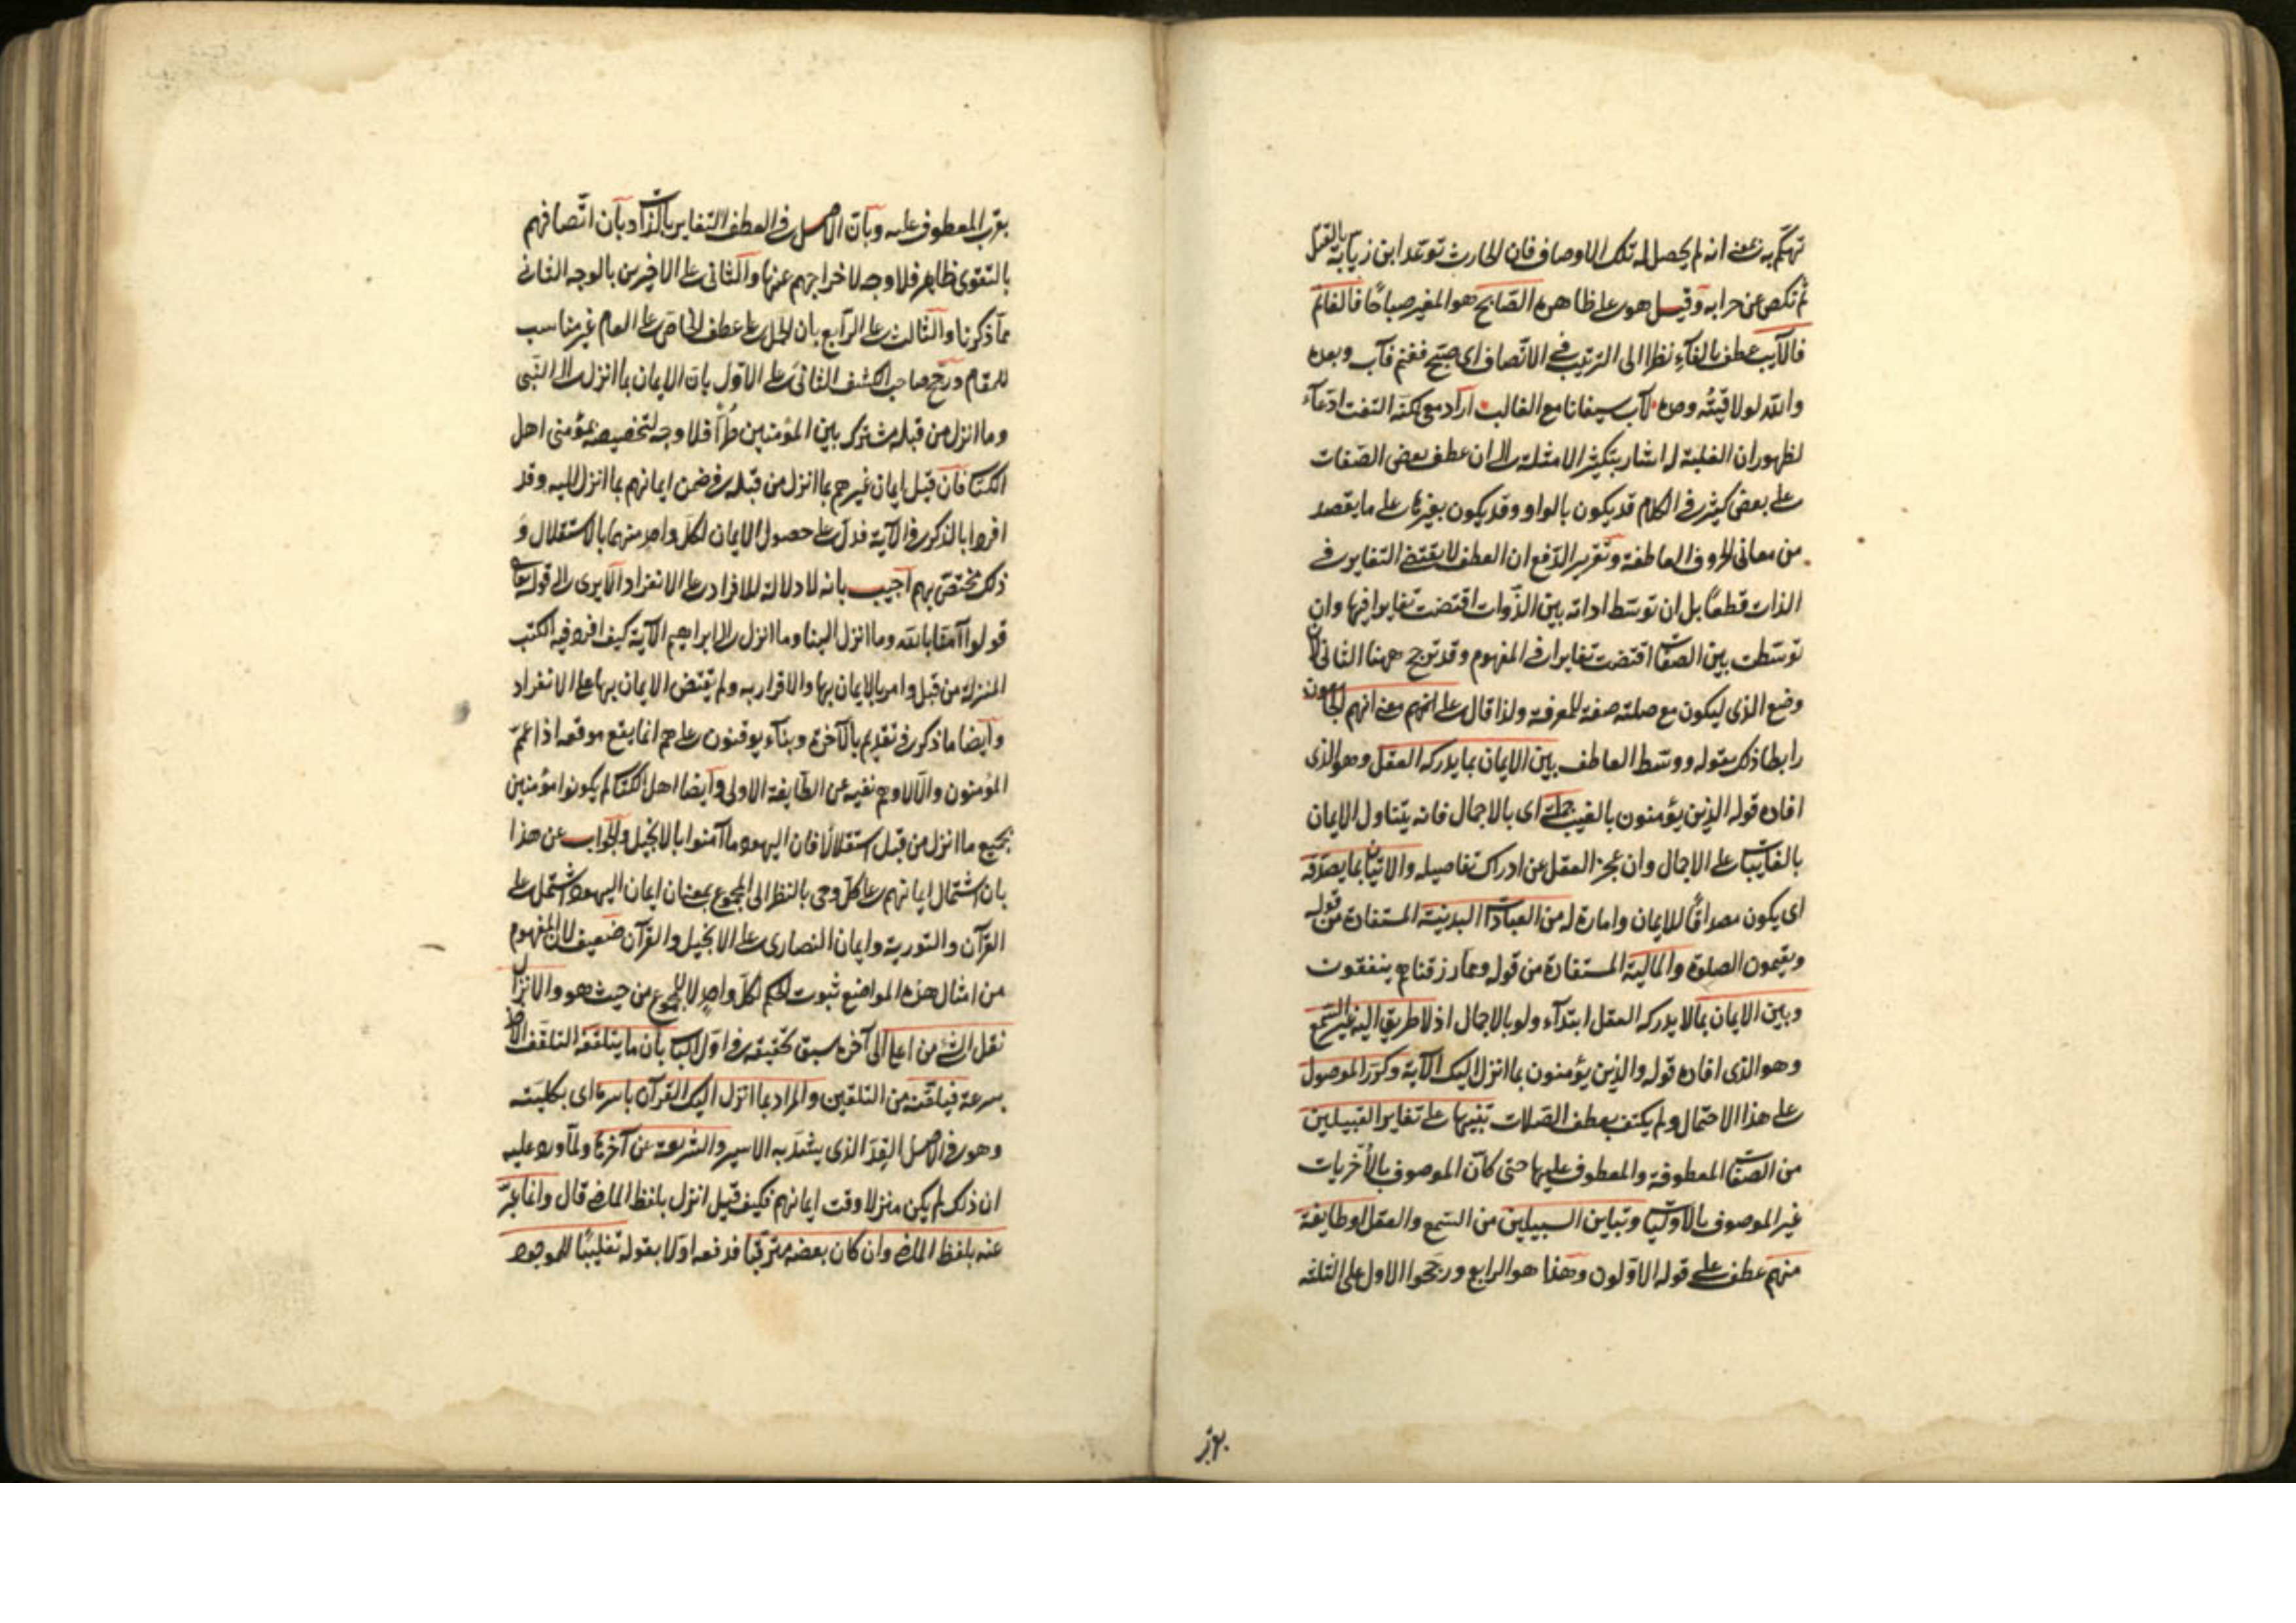 تهكم به يعني انه لم يحصل له تلك الاوصاف فان الحارث توعد ابن زيابة بالقتل
ثم نكص عن حرابه وقيل هو على ظاهره الصّابح هو المغير صباحًا فالغانم
فالآيب عطف بالفآء نظرا الى الترتيب في الاتّصاف اى صبّح فغنم فآب وبعده
والله لولاقيتُه وحده لآب سيفانا مع الغالب اراد معى لكنه التفت ادّعآء
لظهور ان الغلبة له اشار بتكثير الامثلة الى ان عطف بعض الصّفات
على بعض كثير في الكلام قد يكون بالواو وقد يكون بغيرها على ما يقصد
من معانى الحروف العاطفة وتقرير الدّفع ان العطف لا يقتضى التغاير في
الذات قطعًا بل ان توسّط اداته بين الذّوات اقتضت تغايرا فيها وان
توسّطت بين الصفات اقتضت تغايرا في المفهوم وقد ترجح ههنا الثانى لان
وضع الذى ليكون مع صلته صفة للمعرفة ولذا قال على انهم معنى انهم الجامعون
رابطا ذلك بقوله ووسّط العاطف بين الايمان بما يدركه العقل وهو الذى
افاده قوله الذين يؤمنون بالغيب جملة اى بالاجمال فانه يتناول الايمان
بالغايبات على الاجمال وان عجز العقل عن ادراك تفاصيله والاتيان بما يصدّقه
اى يكون مصداقًا للايمان وامارة له من العبادات البدنية المستفادة من قوله
ويقيمون الصلوة والمالية المستفادة من قوله ومما رزقناهم ينفقون
وبين الايمان بما لا يدركه العقل ابتدآء ولو بالاجمال اذ لا طريق اليه غير السّمع
وهو الذى افاده قوله والذين يؤمنون بما انزل اليك الآية وكرّر الموصول
على هذا الاحتمال ولم يكتف بعطف الصّلات تنبيها على تغاير القبيلين
من الصفات المعطوفة والمعطوف عليها حتى كانّ الموصوف بالأخريات
غير الموصوف بالاوليات وتباين السبيلين من السّمع والعقل او طايفة
منهم عطف على قوله الاوّلون وهذا هو الرابع ورجّحوا الاول على الثلثة
بقرب
بقرب المعطوف عليه وبأنّ الاصل في العطف التغاير بالذات وبأن اتّصافهم
بالتقوى ظاهر فلا وجه لاخراجهم عنها والثانى على الاخيرين بالوجه الثانى
مما ذكرنا والثالث على الرّابع بان الحمل على عطف الخاصّ على العام غير مناسب
للمقام ورجّح صاحب الكشف الثانى على الاوّل بان الايمان بما انزل الى النّبى
وما انزل من قبله مشترك بين المؤمنين طرًّا فلا وجه لتخصيصه بمؤمنى اهل
الكتاب فان قيل ايمان غيرهم بما انزل من قبله في ضمن ايمانهم بما انزل اليه وقد
افردا بالذكر في الآية فدلّ على حصول الايمان لكل واحد منهما بالاستقلال و
ذلك مختصّ بهم اجيب بانه لا دلالة للافراد على الانفراد الا يرى الى قوله تعالى
قولوا آمنّا بالله وما انزل الينا وما انزل الى ابراهيم الآية كيف افرد فيه الكتب
المنزلة من قبل وامر بالايمان بها والاقرار به ولم يقتض الايمان بها على الانفراد
وايضا ما ذكر في تقديم بالآخرة وبنآء يوقنون على هم انما يقع موقعه اذا عمّ
المؤمنون والا لاوهم نفيه عن الطّايفة الاولى وايضا اهل الكتاب لم يكونوا مؤمنين
بجميع ما انزل من قبل استقلالًا فان اليهود ما آمنوا بالانجيل والجواب عن هذا
بان اشتمال ايمانهم على كل وحى بالنظر الى المجموع بمعنى ان ايمان اليهود اشتمل على
القرآن والتورية وايمان النصارى على الانجيل والقرآن ضعيف لان المفهوم
من امثال هذه المواضع ثبوت الحكم لكلّ واحدٍ لا للمجموع من حيث هو والانزال
نقل الشئ من اعلى الى آخره سبق تحقيقه في اول الكتاب بان ما يتلقفه التلقف الاخذ
بسرعة فيلقنه من التلقين والمراد بما انزل اليك القرآن باسره اى بكليته
وهو في الاصل القِدّ الذى يشدّ به الاسير والشريعة عن آخرها ولمّا ورد عليه
ان ذلك لم يكن منزلا وقت ايمانهم فكيف قيل انزل بلفظ الماضى قال وانما عبّر
عنه بلفظ الماضى وان كان بعضه مترقّبا فدفعه اولا بقوله تغليبًا للموجود